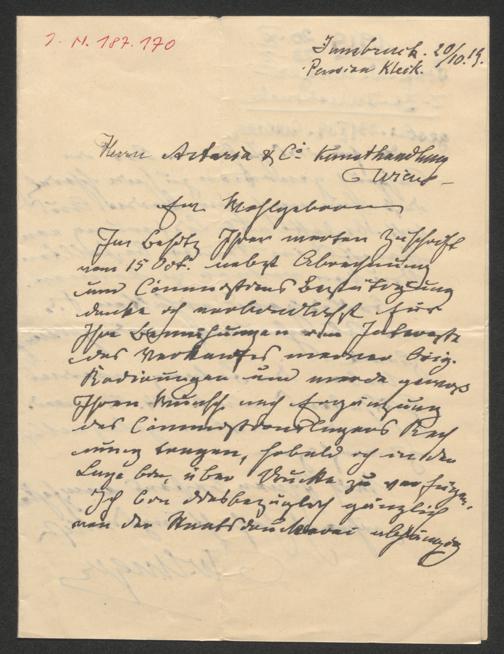 I. N. 187.170
Innsbruck. 20/10.19.
Pension Kleik.
Herrn Artaria & Co Kunsthandlung
Wien
Euer Wohlgeboren
Im Besitz Ihrer werten Zuschrift
vom 15 Okt. nebst Abrechnung
und Commissions Bestätigung
danke ich verbindlichst für
Ihre Bemühungen im Interesse
des Verkaufes meiner Orig.
Radirungen und werde gemäß
Ihrem Wunsch nach Ergänzung
des Commissionslagers Rech
nung tragen, sobald ich in der
Lage bin, über Drucke zu verfügen.
Ich bin diesbezüglich gänzlich
von der Staatsdruckerei abhängig